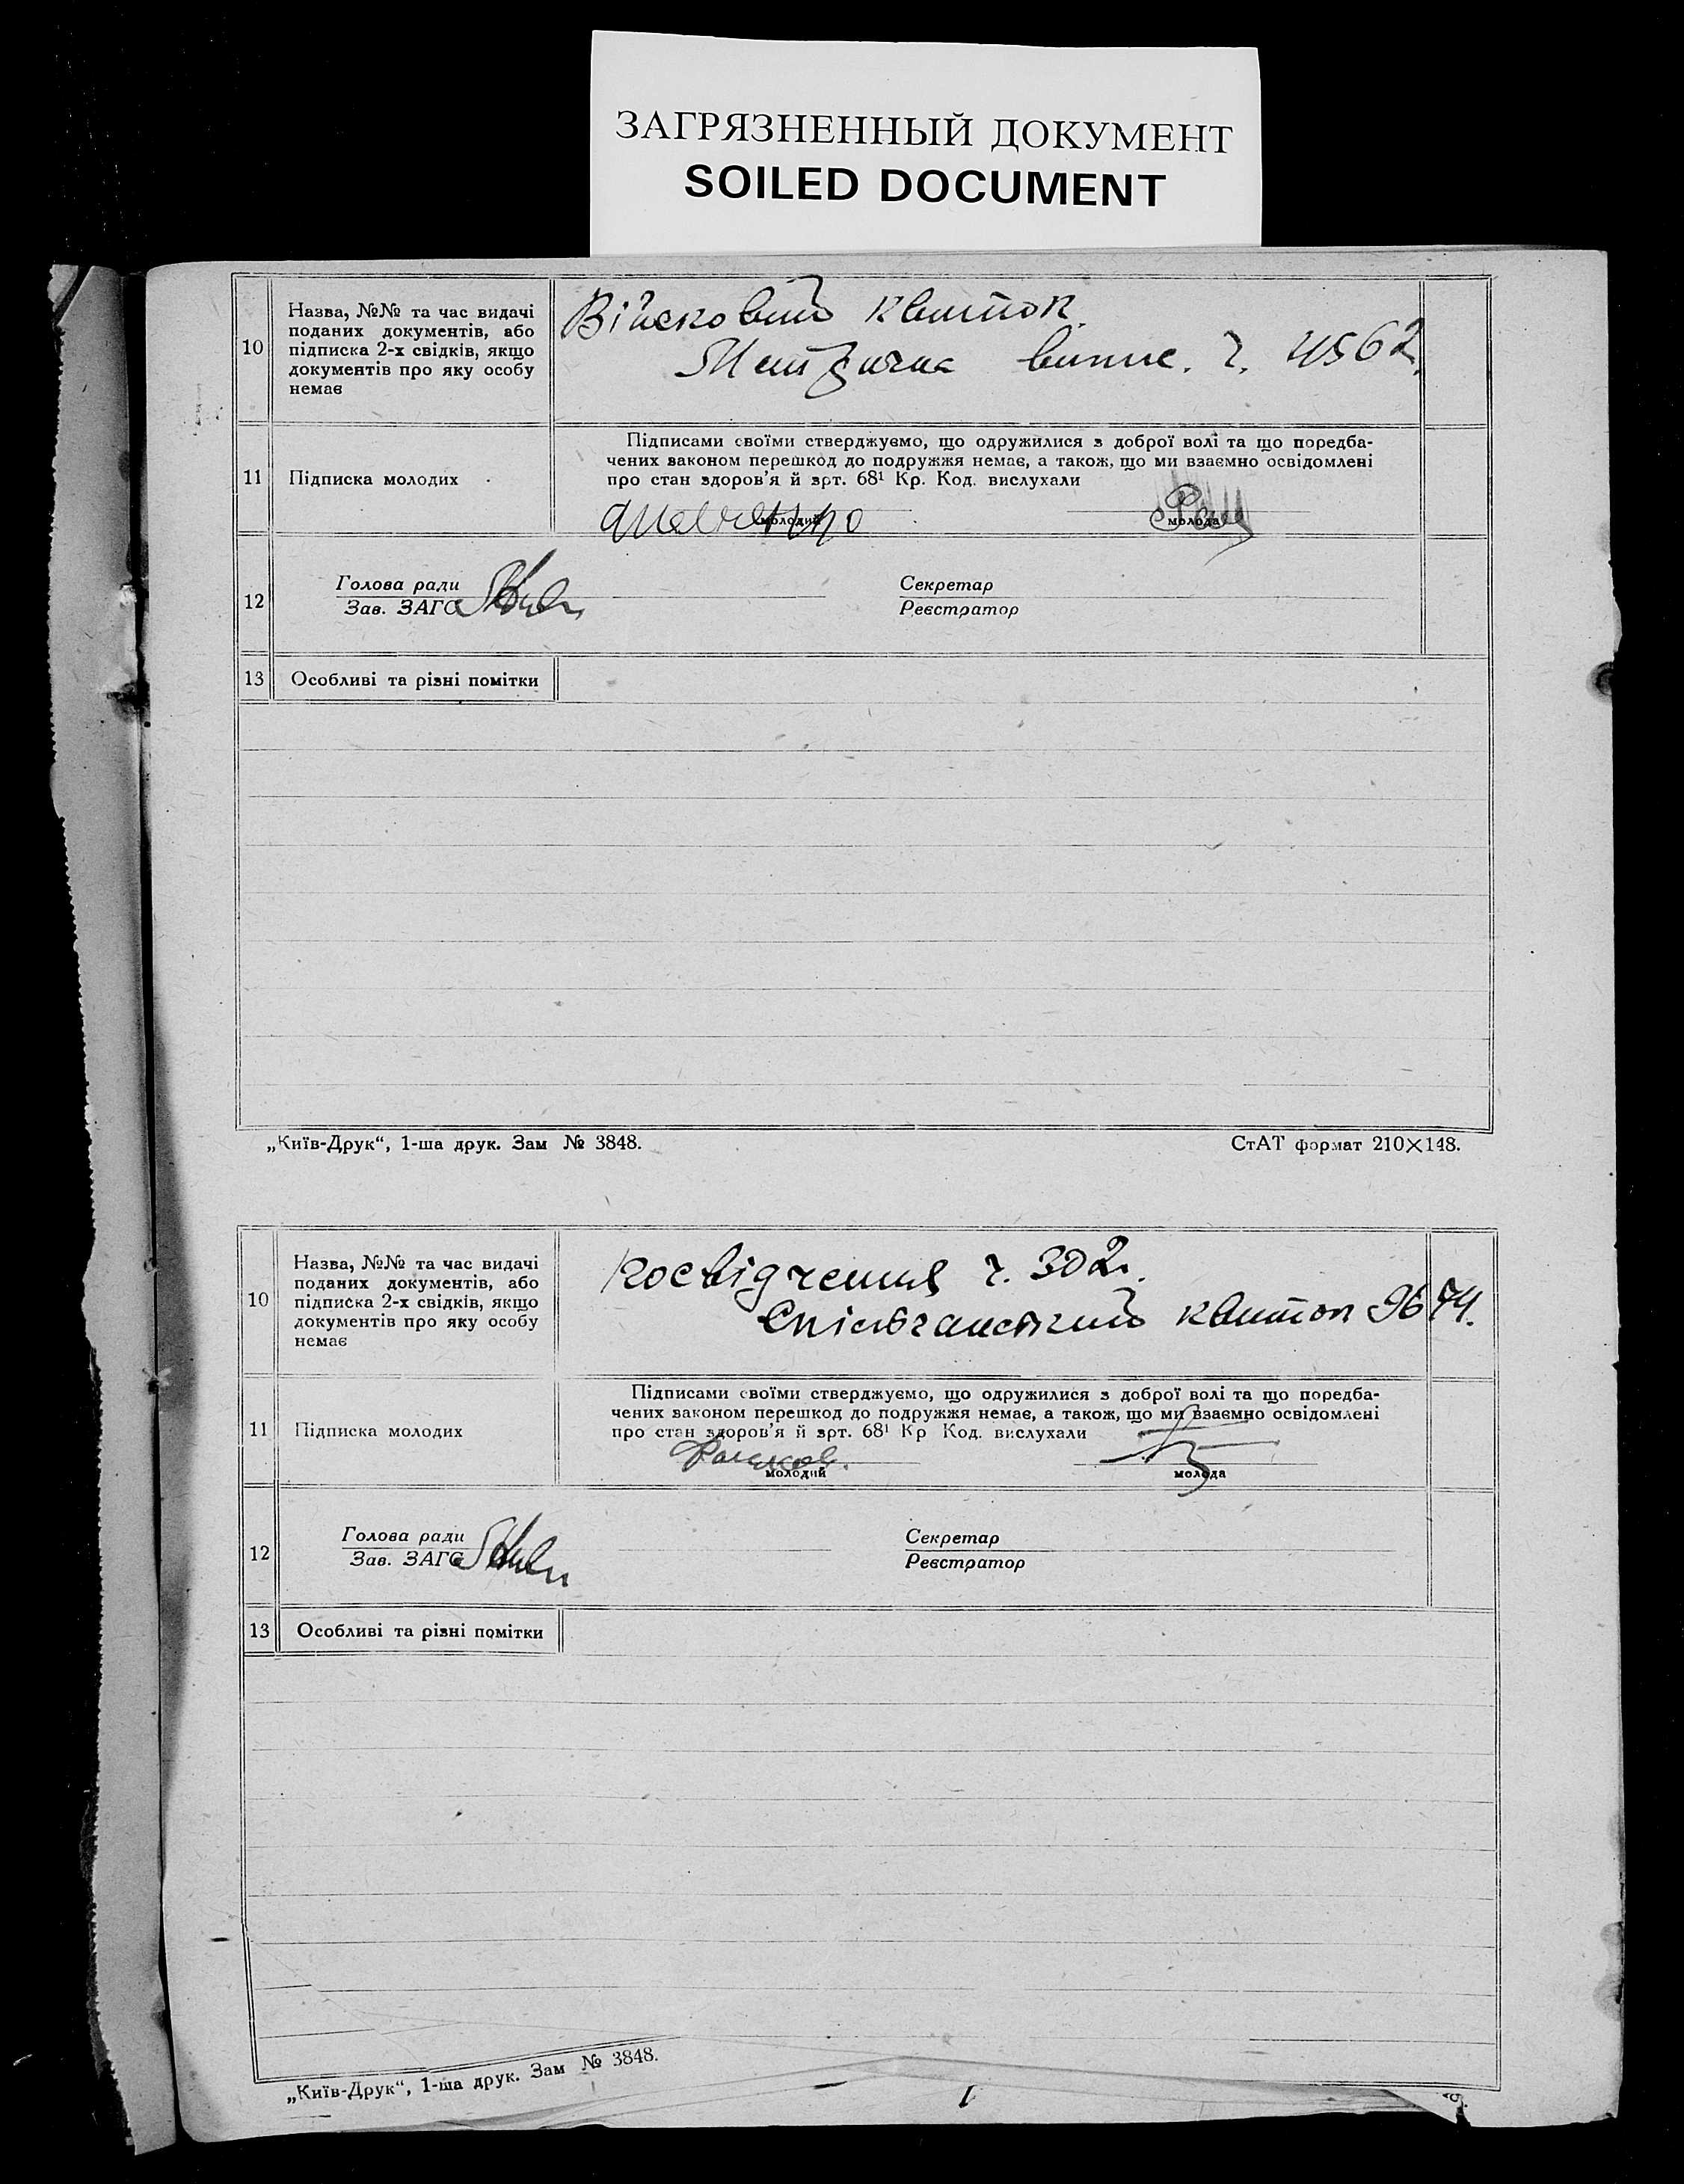 ЗАГРЯЗНЕННЫЙ ДОКУМЕНТ
SOILED DOCUMENT
10
Назва, №№ та час видачі
поданих документів, або
підписка 2-х свідків, якщо
документів про яку особу
немає
Військовий квиток.
Метрична випис. ч. 4562.
11
Підписка молодих
Підписами своїми стверджуємо, що одружилися з доброї волі та що поредба-
чених законом перешкод до подружжя немає, а також, що ми взаємно освідомлені
про стан здоров'я й арт. 68¹ Кр. Код. вислухали
молодий
молода
12
Голова ради
Зав. ЗАГС
Секретар
Реєстратор
13
Особливі та різні помітки
„Київ-Друк“, 1-ша друк. Зам № 3848.
СтАТ формат 210×148.
10
Назва, №№ та час видачі
поданих документів, або
підписка 2-х свідків, якщо
документів про яку особу
немає
Посвідчення ч. 302.
квиток 9674.
11
Підписка молодих
Підписами своїми стверджуємо, що одружилися з доброї волі та що поредба-
чених законом перешкод до подружжя немає, а також, що ми взаємно освідомлені
про стан здоров'я й арт. 68¹ Кр Код. вислухали
молодий
молода
12
Голова ради
Зав. ЗАГС
Секретар
Реєстратор
13
Особливі та різні помітки
„Київ-Друк“, 1-ша друк. Зам № 3848.